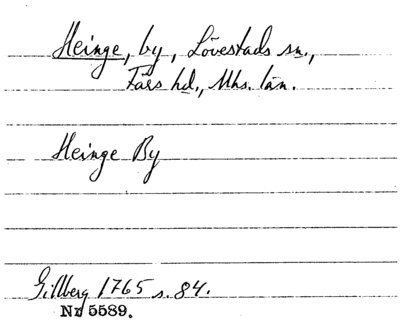 Heinge, by, Lövestads sn.,
Färs hd., Mhs. län.
Heinge By
Gillberg 1765 s. 84.
Nr 5589.